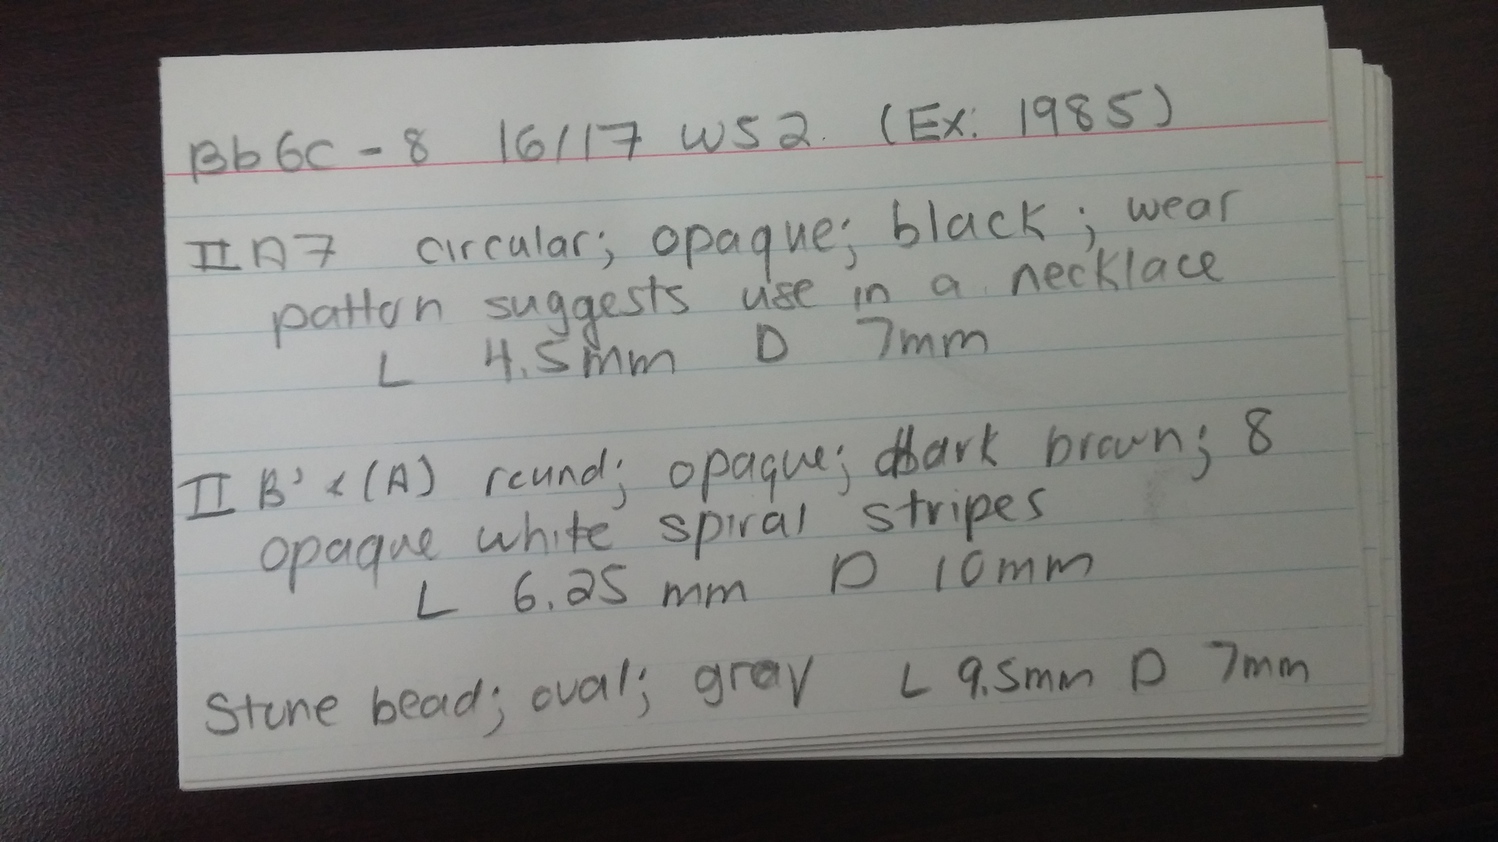 Bb6c - 8 16/17 WS 2. (Ex: 1985)
II A7 circular; opaque; black; wear
pattern suggests use in a necklace
L 4.5mm D 7mm
II B' (A) round; opaque; dark brown; 8
opaque white spiral stripes
L 6.25 mm D 10mm
Stone bead; oval; gray L 9.5mm D 7mm